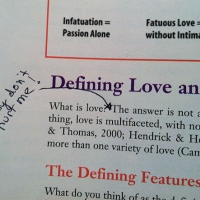 Infatuation =
Passion Alone
Fatuous Love =
without Intima
don't
hurt me!
Defining Love an
What is love? The answer is not a
thing, love is multifaceted, with no
& Thomas, 2000; Hendrick & He
more than one variety of love (Can
The Defining Features
What do you think of as the defi